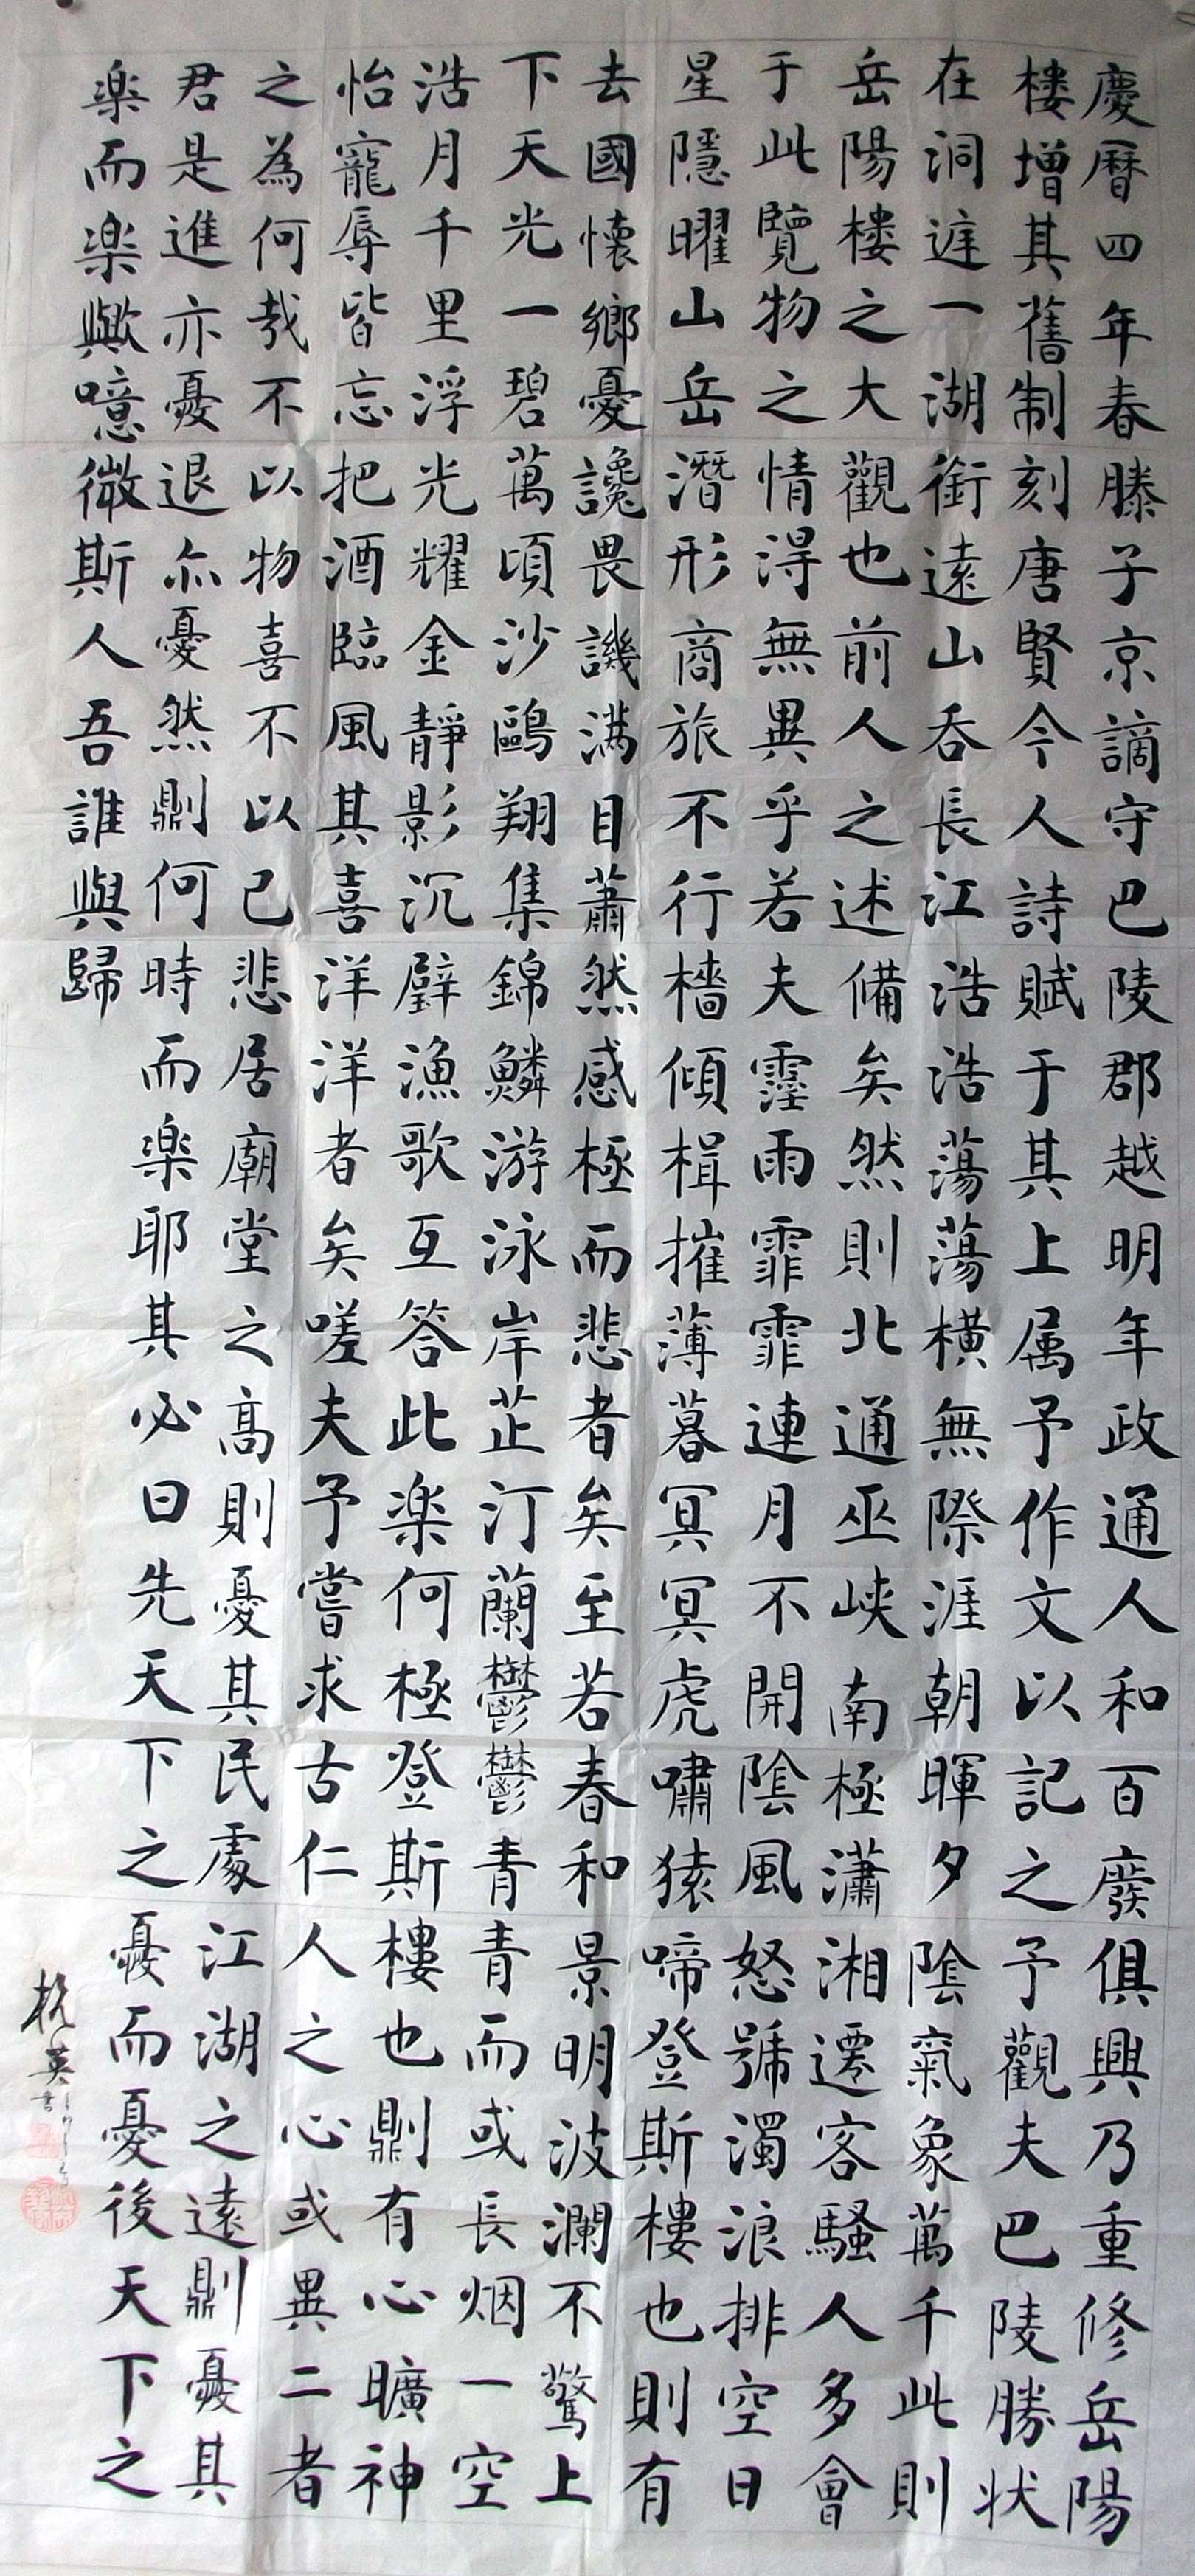 慶暦四年春滕子京謫守巴陵郡越明年政通人和百廢俱興乃重修岳陽
楼增其舊制刻唐賢今人詩賦于其上属予作文以記之予觀夫巴陵勝状
在洞庭一湖銜遠山吞長江浩浩蕩蕩橫無際涯朝暉夕陰氣象萬千此則
岳陽楼之大觀也前人之述備矣然則北通巫峽南極瀟湘遷客騷人多會
于此覽物之情得無異乎若夫霪雨霏霏連月不開陰風怒號濁浪排空日
星隱曜山岳潛形商旅不行檣傾楫摧薄暮冥冥虎嘯猿啼登斯樓也則有
去國懷鄉憂讒畏譏滿目蕭然感極而悲者矣至若春和景明波瀾不驚上
下天光一碧萬頃沙鷗翔集錦鱗游泳岸芷汀蘭鬱鬱青青而或長烟一空
浩月千里浮光耀金靜影沉璧漁歌互答此楽何極登斯樓也鼎有心曠神
怡寵辱皆忘把酒臨風其喜洋洋者矣嗟夫予嘗求古仁人之心或異二者
之為何哉不以物喜不以己悲居廟堂之高則憂其民處江湖之遠則憂其
君是進亦憂退亦憂然則何時而楽耶其必曰先天下之憂而憂後天下之
楽而楽歟噫微斯人吾誰與歸
杭英書